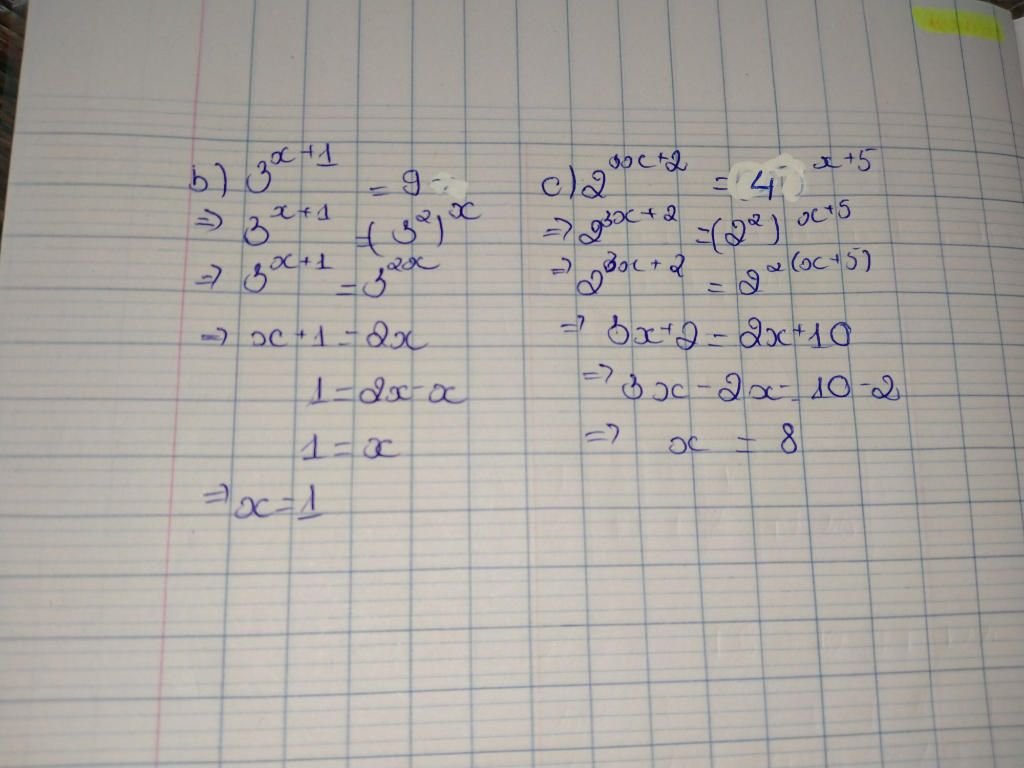 b) 3^{x+1} = 9
⇒ 3^{x+1} = (3^2)^x
⇒ 3^{x+1} = 3^{2x}
⇒ x+1 = 2x
1 = 2x - x
1 = x
⇒ x = 1
c) 2^{3x+2} = 4^{x+5}
⇒ 2^{3x+2} = (2^2)^{x+5}
⇒ 2^{3x+2} = 2^{2(x+5)}
⇒ 3x+2 = 2x+10
⇒ 3x - 2x = 10 - 2
⇒ x = 8